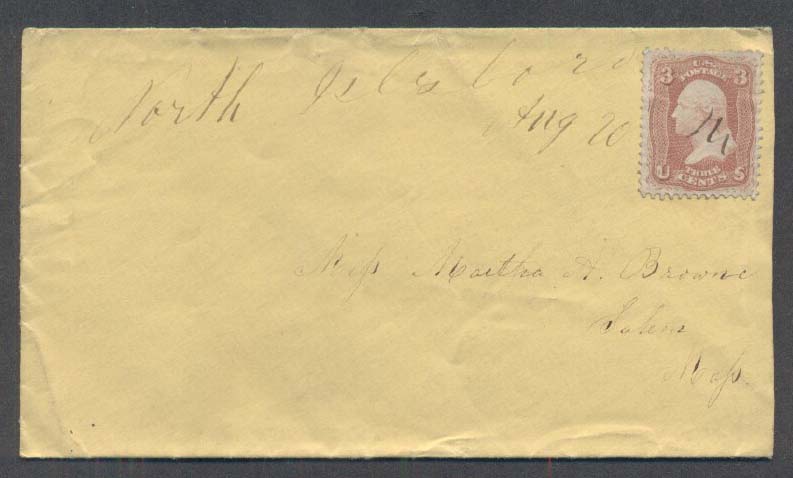 North Islesboro
Aug 20
3 U.S. 3
POSTAGE
THREE
U CENTS S
Miss Martha A. Browne
Salem
Mass.